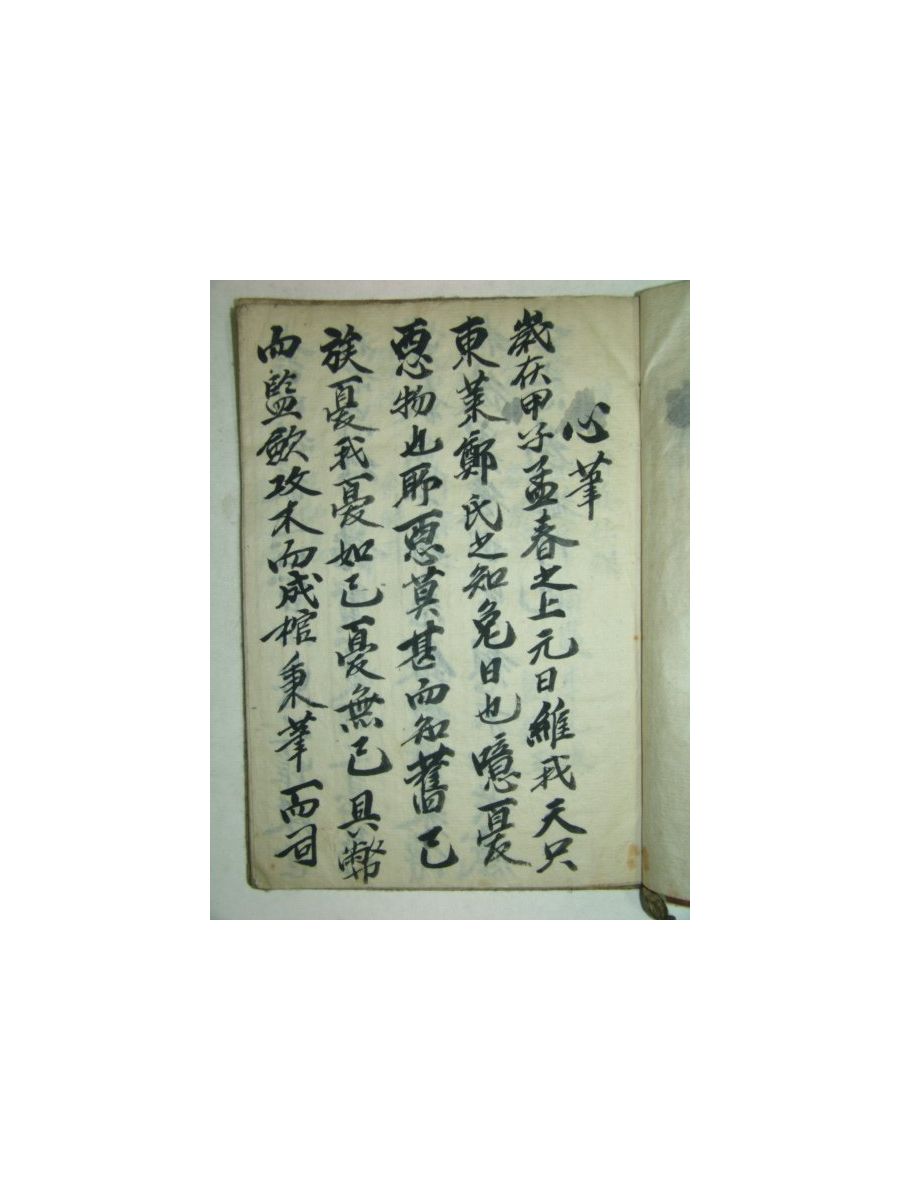 心筆
歲在甲子孟春之上元日維我天只
東萊鄭氏之知免日也噫憂
惪物也耶惪莫甚而知舊己
族憂我憂如己憂無已具幣
而監斂攻木而成棺秉筆而司